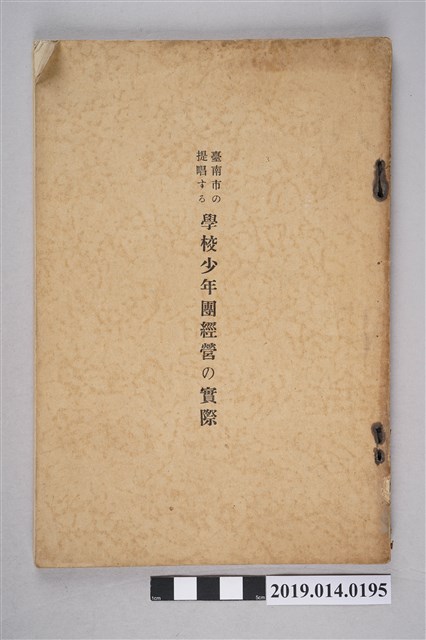 臺南市の
提唱する
學校少年團經營の實際
1cm
5cm
2019.014.0195